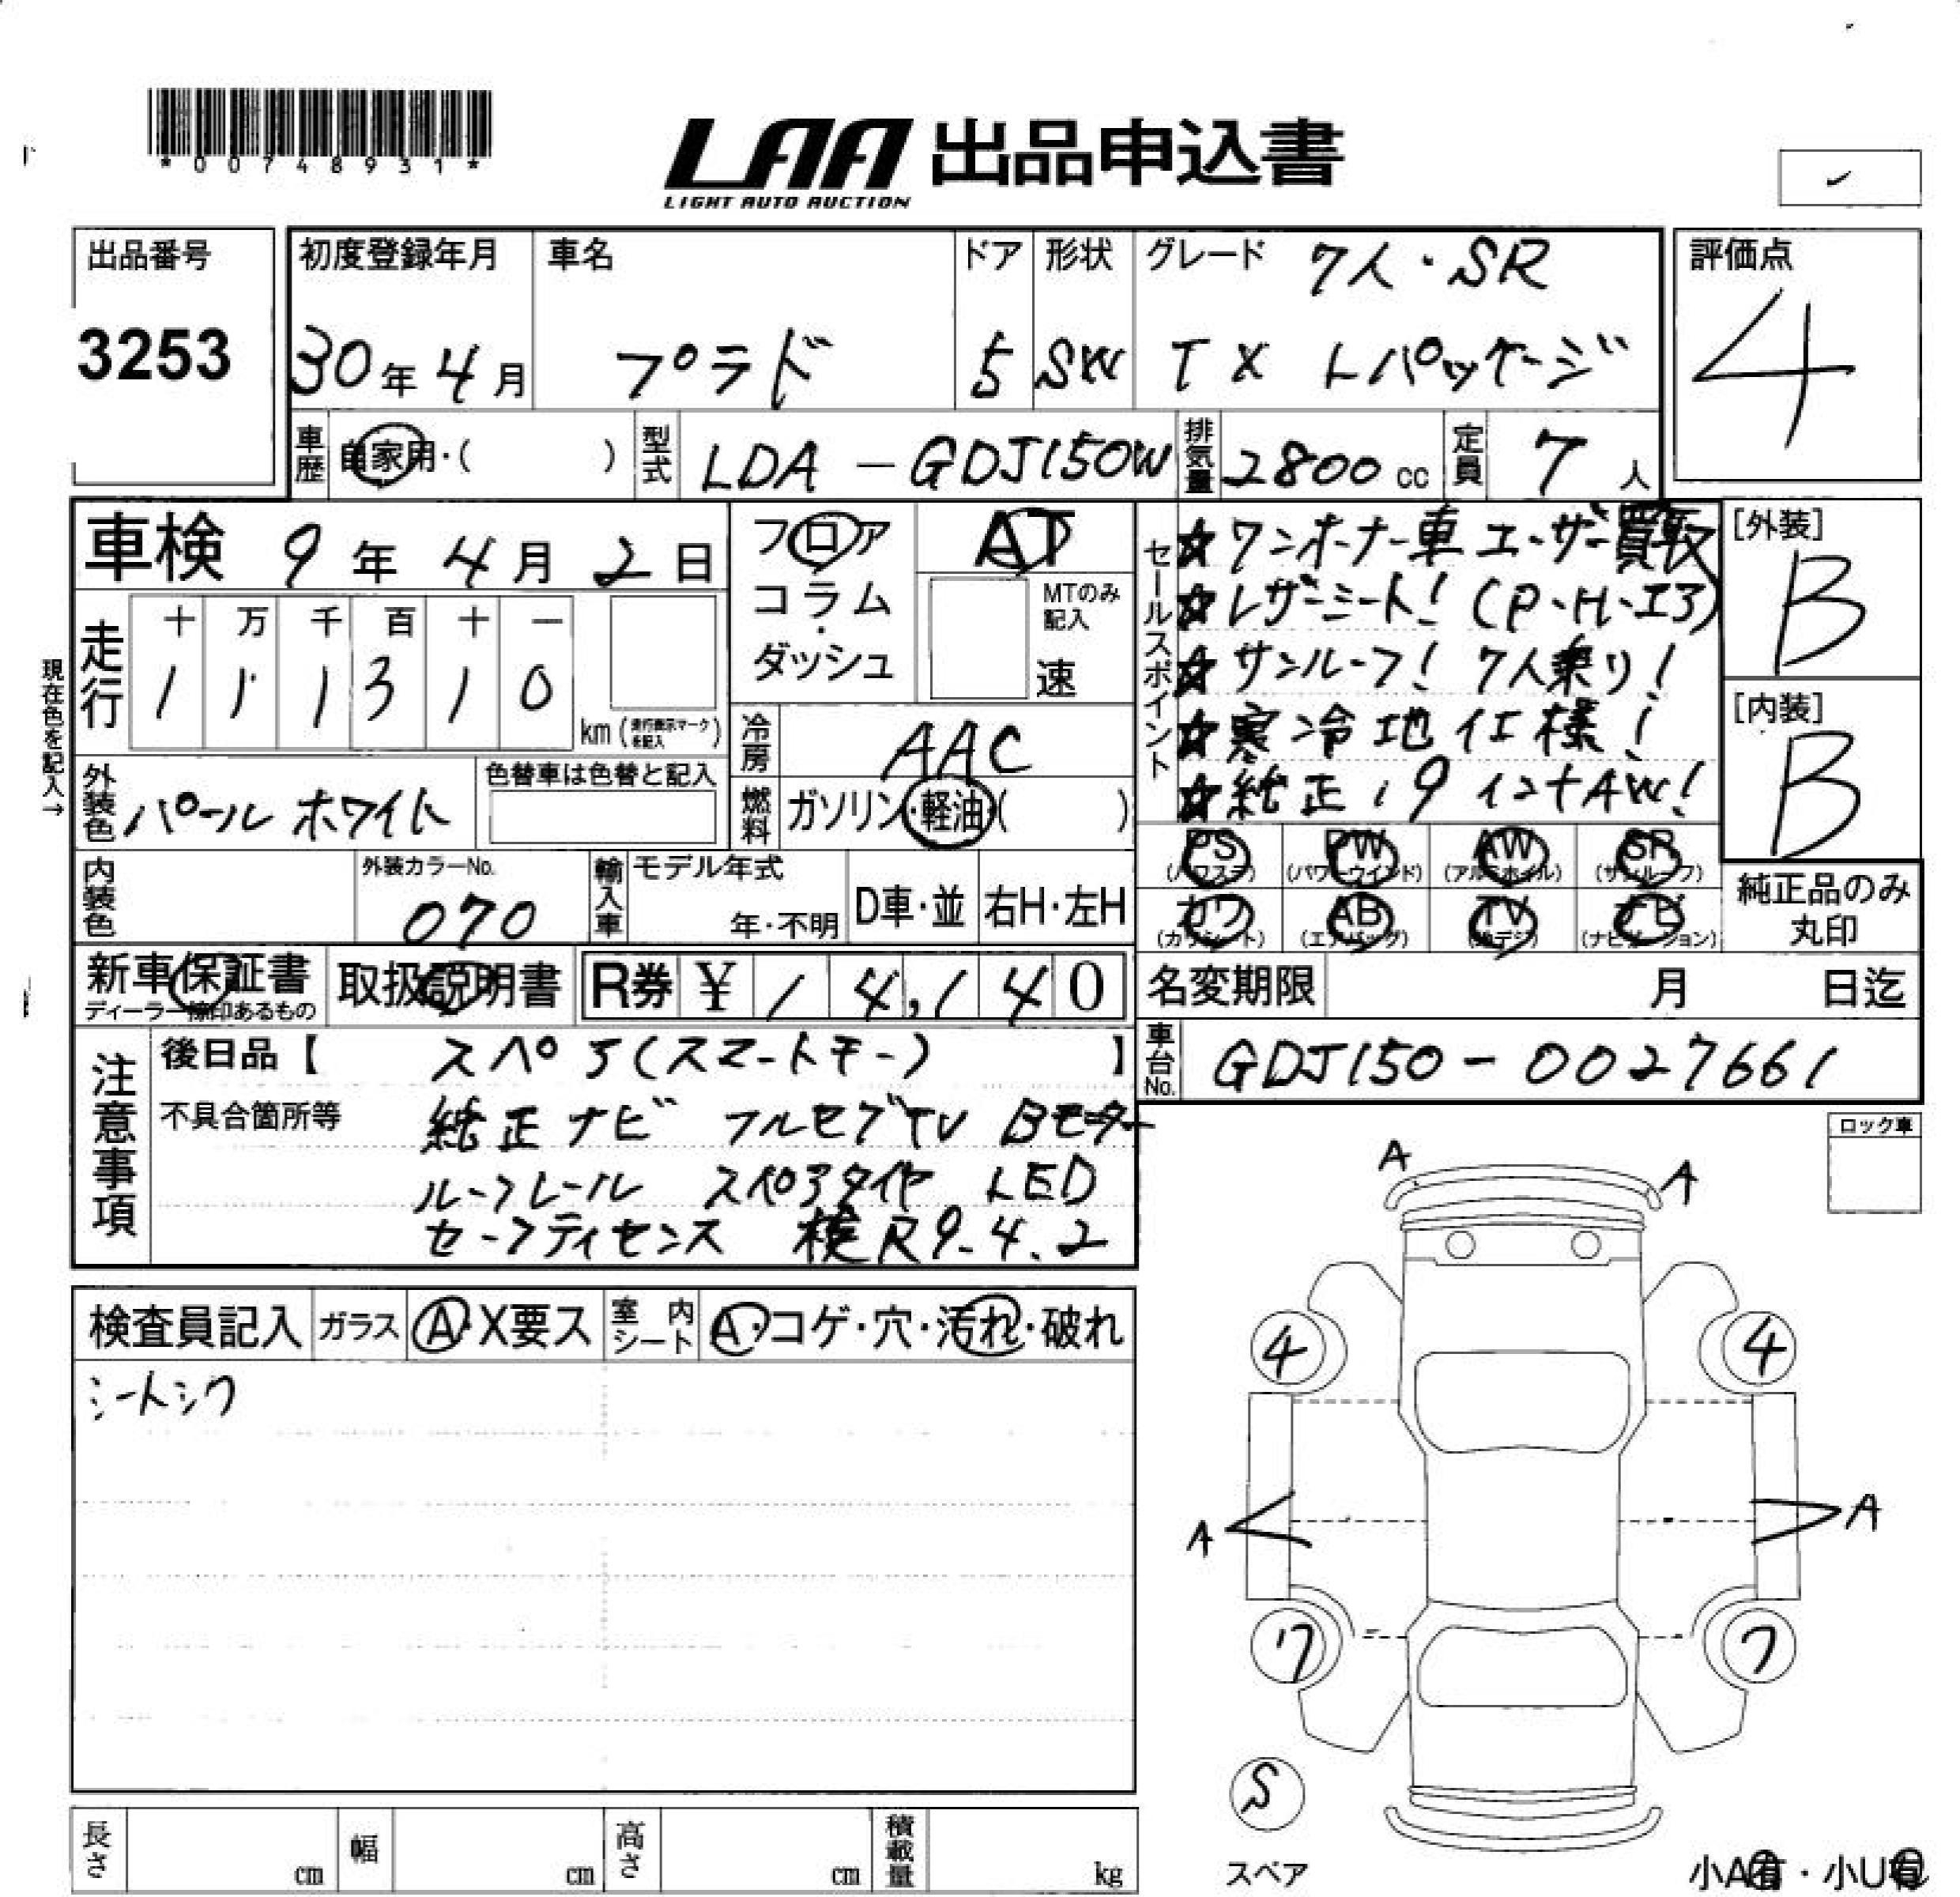 *00748931*
LAA 出品申込書
LIGHT AUTO AUCTION
出品番号
3253
初度登録年月
30年4月
車名
プラド
ドア
5
形状
SW
グレード 7人・SR
TX Lパッケージ
評価点
4
車歴 自家用・( )
型式 LDA-GDJ150W
排気量 2800cc
定員 7人
車検 9年4月2日
走行
十 万 千 百 十 一
1 1 1 3 1 0
km (走行表示マークを記入)
現在色を記入→
フロア
コラム
・
ダッシュ
AT
MTのみ記入
速
冷房 AAC
燃料 ガソリン・軽油・( )
外装色 パールホワイト
色替車は色替と記入
内装色
外装カラーNo.
070
輸入車
モデル年式
年・不明
D車・並
右H・左H
セールスポイント
☆ワンオーナー車 ユーザー買取
☆レザーシート! (P・H・エア)
☆サンルーフ! 7人乗り!
☆寒冷地仕様!
☆純正19インチAW!
[外装]
B
[内装]
B
PS (パワステ)
PW (パワーウインド)
AW (アルミホイル)
SR (サンルーフ)
カワ (カワシート)
AB (エアバッグ)
TV (地デジ)
ナビ (ナビゲーション)
純正品のみ
丸印
新車保証書
ディーラー捺印あるもの
取扱説明書
R券 ¥ 14,140
名変期限 月 日迄
車台No. GDJ150-0027661
注意事項
後日品【 スペア(スマートキー) 】
不具合箇所等 純正ナビ フルセグTV Bモニター
ルーフレール スペアタイヤ LED
セーフティセンス 検R9.4.2
ロック車
検査員記入
ガラス A・X要ス
室内シート A・コゲ・穴・汚れ・破れ
シートシワ
A
A
4
4
A
A
7
7
S
スペア
長さ cm
幅 cm
高さ cm
積載量 kg
小A有・小U有